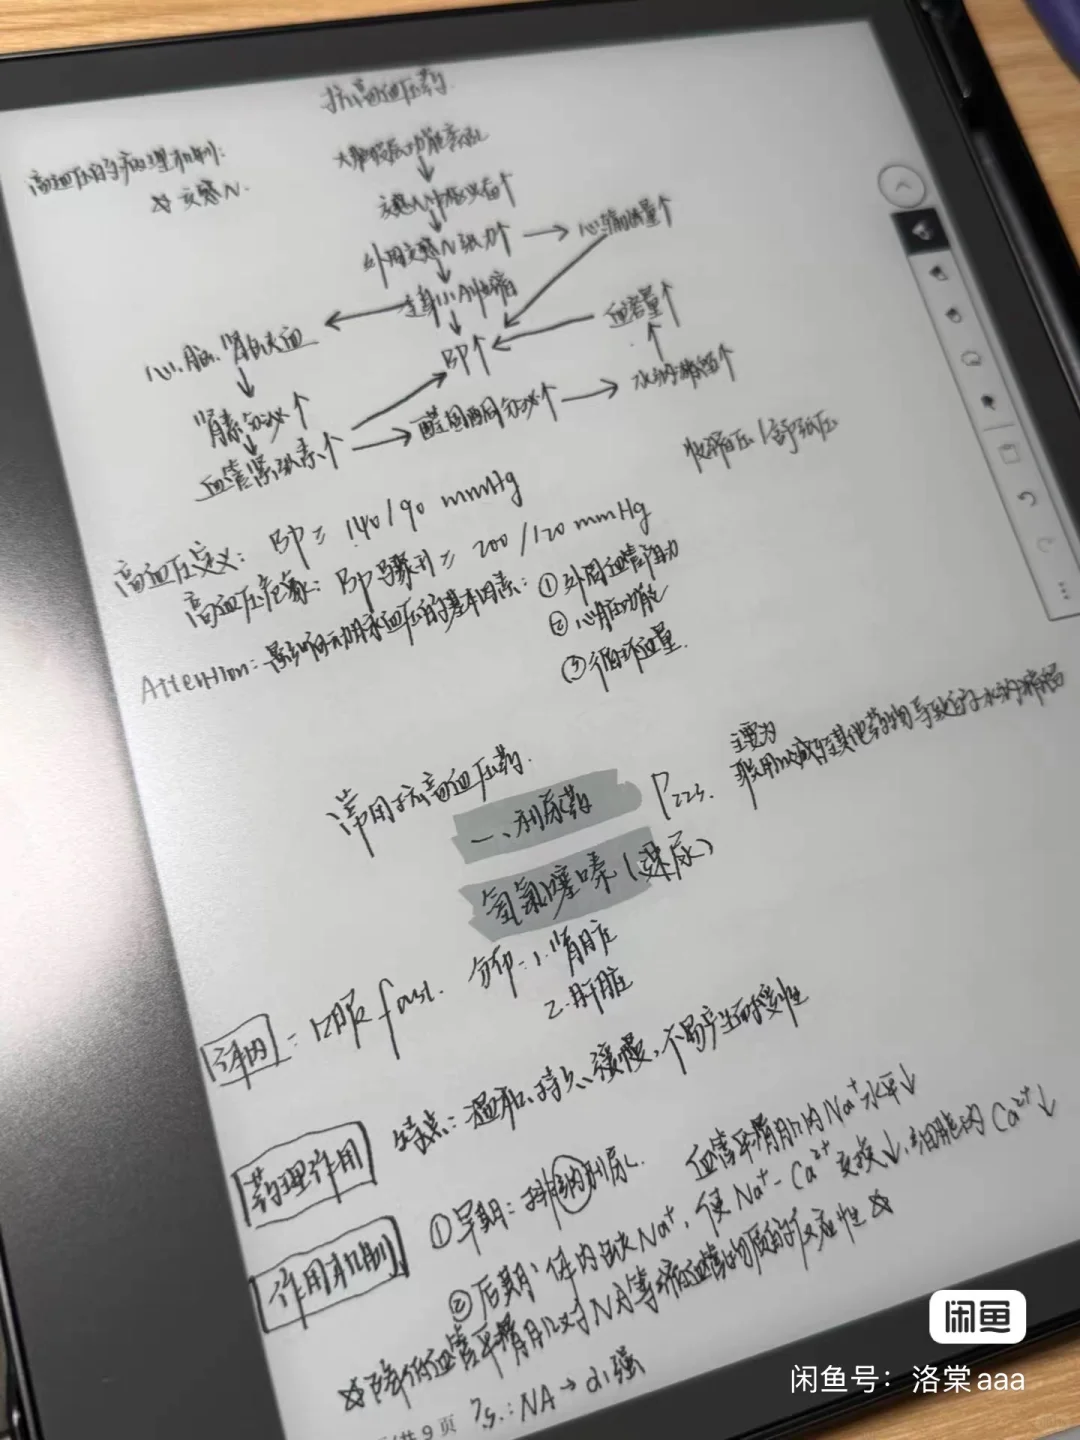 抗高血压药
高血压的病理机制:
☆ 交感N.
大脑皮层功能紊乱
交感N中枢兴奋↑
外周交感N张力↑ → 心输出量↑
全身小A收缩
心、脑、肾缺血
血容量↑
BP↑
水钠潴留↑
肾素分泌↑
醛固酮分泌↑
血管紧张素↑
收缩压/舒张压
高血压定义: BP ≥ 140/90 mmHg
高血压危象: BP骤升 ≥ 200/120 mmHg
Attention: 影响动脉血压的基本因素: ①外周血管阻力
②心脏功能
③循环血量.
常用抗高血压药.
一、利尿药
P225.
主要为
联用以减轻其他药物导致的水钠潴留
氢氯噻嗪(速尿)
体内 = 口服 fast. 分布: 1. 肾脏
2. 肝脏
药理作用 特点: 温和、持久、缓慢, 不易产生耐受性
作用机制 ①早期: 排钠利尿. 血管平滑肌内Na⁺水平↓
②后期: 体内缺Na⁺, 使Na⁺-Ca²⁺交换↓, 细胞内Ca²⁺↓
☆降低血管平滑肌对NA等缩血管物质的反应性☆
Ps.: NA → α₁强
共9页
闲鱼
闲鱼号：洛棠aaa